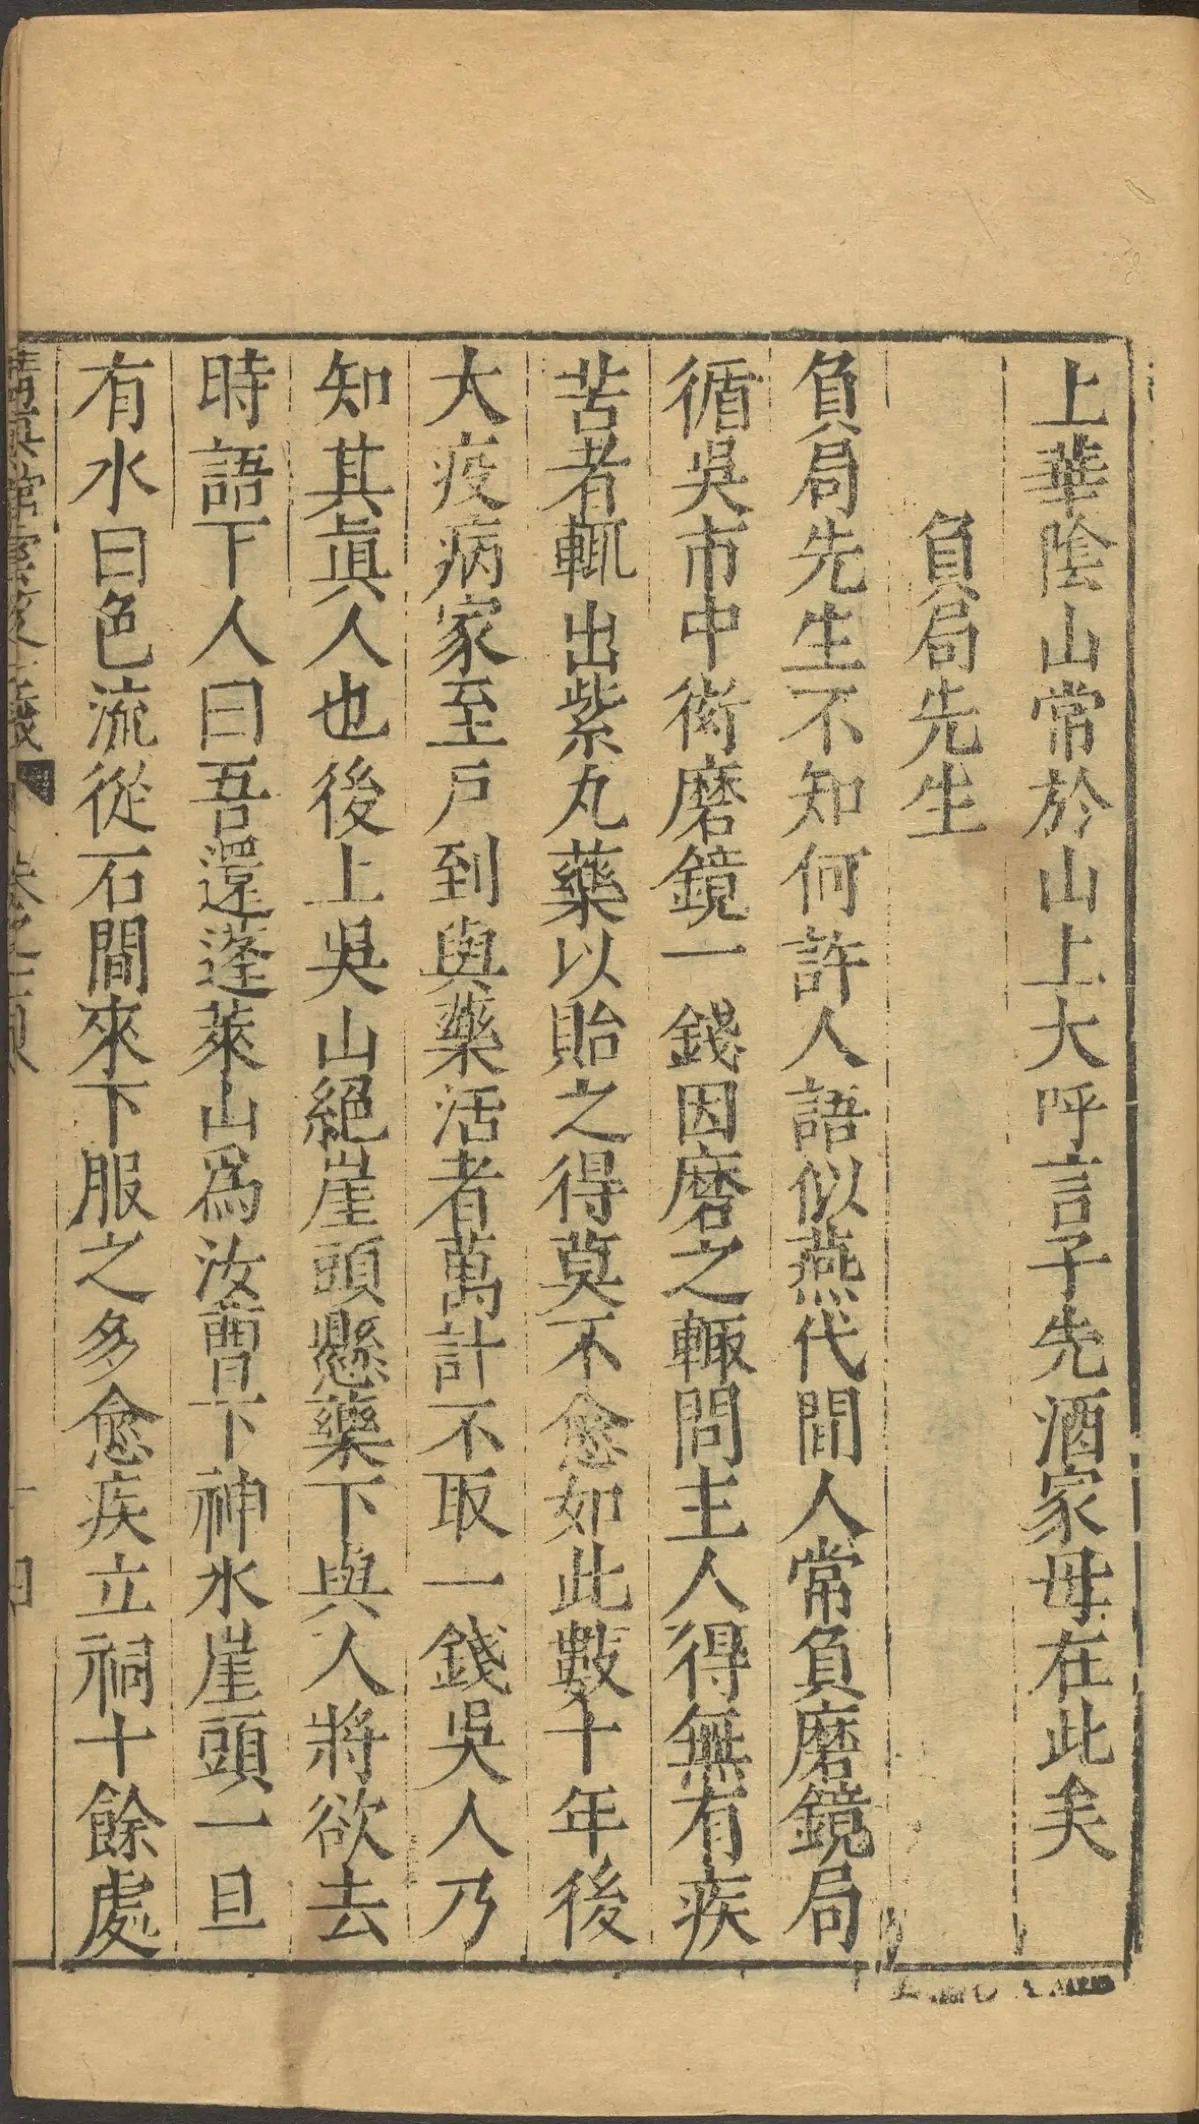 上華陰山常於山上大呼言子先酒家母在此矣
負局先生
負局先生不知何許人語似燕代間人常負磨鏡局
循吳市中衒磨鏡一錢因磨之輙問主人得無有疾
苦者輒出紫丸藥以貽之得莫不愈如此數十年後
大疫病家至戶到與藥活者萬計不取一錢吳人乃
知其眞人也後上吳山絕崖頭懸藥下與人將欲去
時語下人曰吾還蓬萊山爲汝曹下神水崖頭一旦
有水曰色流從石間來下服之多愈疾立祠十餘處